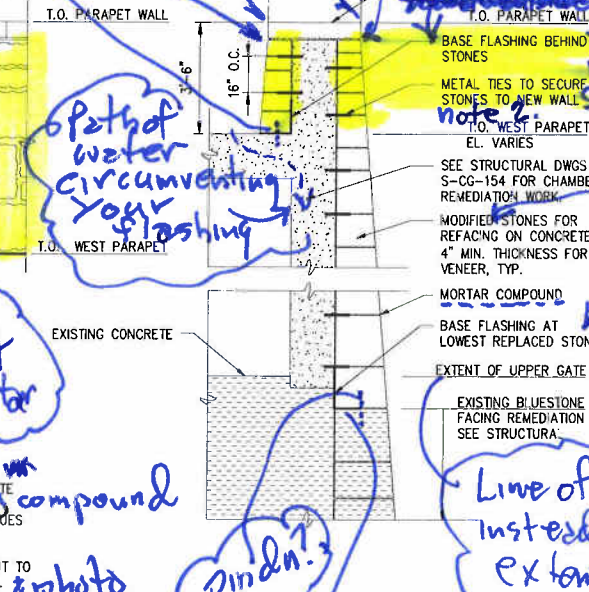 T.O. PARAPET WALL
T.O. PARAPET WALL
BASE FLASHING BEHIND
STONES
3'-6"
16" O.C.
METAL TIES TO SECURE
STONES TO NEW WALL
note 2.
T.O. WEST PARAPET
EL. VARIES
Path of
water
circumventing
your
flashing
SEE STRUCTURAL DWGS
S-CG-154 FOR CHAMBE
REMEDIATION WORK
MODIFIED STONES FOR
REFACING ON CONCRETE
4" MIN. THICKNESS FOR
VENEER, TYP.
T.O. WEST PARAPET
MORTAR COMPOUND
EXISTING CONCRETE
BASE FLASHING AT
LOWEST REPLACED STON
EXTENT OF UPPER GATE
EXISTING BLUESTONE
FACING REMEDIATION
SEE STRUCTURA
compound
Line of
instead
exten
TE
UES
T TO
photo